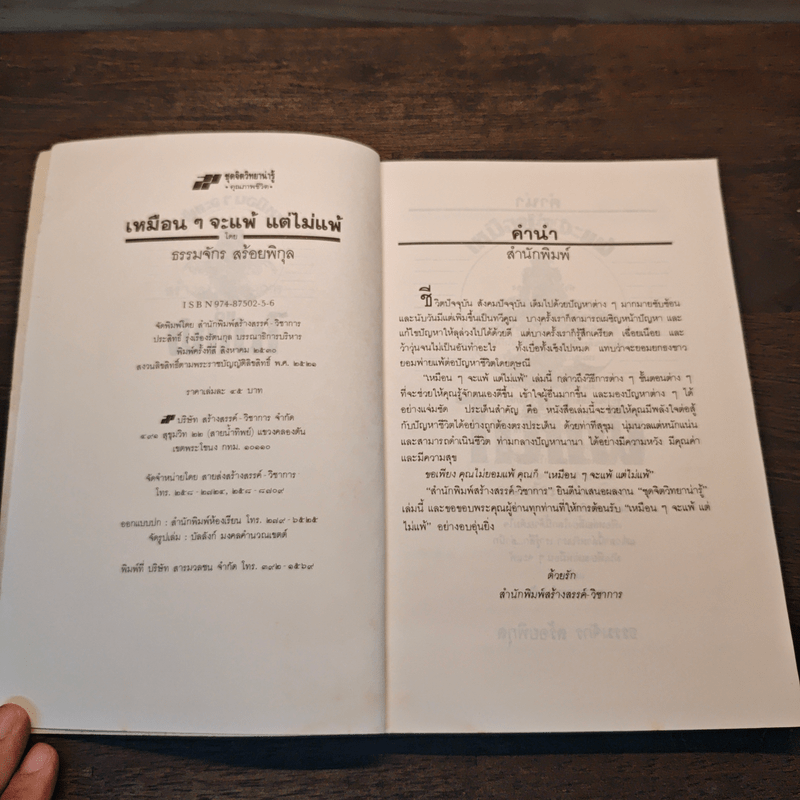 ชุดจิตวิทยาน่ารู้
• คุณภาพชีวิต •
เหมือน ๆ จะแพ้ แต่ไม่แพ้
โดย
ธรรมจักร สร้อยพิกุล
ISBN 974-87502-5-6
จัดพิมพ์โดย สำนักพิมพ์สร้างสรรค์-วิชาการ
ประสิทธิ์ รุ่งเรืองรัตนกุล บรรณาธิการบริหาร
พิมพ์ครั้งที่สี่ สิงหาคม ๒๕๓๐
สงวนลิขสิทธิ์ตามพระราชบัญญัติลิขสิทธิ์ พ.ศ. ๒๕๒๑
ราคาเล่มละ ๔๕ บาท
บริษัท สร้างสรรค์-วิชาการ จำกัด
๔๙๑ สุขุมวิท ๒๒ (สายน้ำทิพย์) แขวงคลองตัน
เขตพระโขนง กทม. ๑๐๑๑๐
จัดจำหน่ายโดย สายส่งสร้างสรรค์-วิชาการ
โทร. ๒๕๘-๒๘๒๔, ๒๕๘-๘๗๐๙
ออกแบบปก : สำนักพิมพ์ห้องเรียน โทร. ๒๗๙-๖๕๒๕
จัดรูปเล่ม : บัลลังก์ มงคลคำนวณเขตต์
พิมพ์ที่ บริษัท สารมวลชน จำกัด โทร. ๓๙๒-๑๕๖๙
คำนำ
สำนักพิมพ์
ชีวิตปัจจุบัน สังคมปัจจุบัน เต็มไปด้วยปัญหาต่าง ๆ มากมายซับซ้อน
และนับวันมีแต่เพิ่มขึ้นเป็นทวีคูณ บางครั้งเราก็สามารถเผชิญหน้าปัญหา และ
แก้ไขปัญหาให้ลุล่วงไปได้ด้วยดี แต่บางครั้งเราก็รู้สึกเครียด เฉื่อยเนือย และ
ว้าวุ่นจนไม่เป็นอันทำอะไร ทั้งเบื่อทั้งเซ็งไปหมด แทบว่าจะยอมยกธงขาว
ยอมพ่ายแพ้ต่อปัญหาชีวิตโดยดุษณี
"เหมือน ๆ จะแพ้ แต่ไม่แพ้" เล่มนี้ กล่าวถึงวิธีการต่าง ๆ ขั้นตอนต่าง ๆ
ที่จะช่วยให้คุณรู้จักตนเองดีขึ้น เข้าใจผู้อื่นมากขึ้น และมองปัญหาต่าง ๆ ได้
อย่างแจ่มชัด ประเด็นสำคัญ คือ หนังสือเล่มนี้จะช่วยให้คุณมีพลังใจต่อสู้
กับปัญหาชีวิตได้อย่างถูกต้องตรงประเด็น ด้วยท่าทีสุขุม นุ่มนวลแต่หนักแน่น
และสามารถดำเนินชีวิต ท่ามกลางปัญหานานา ได้อย่างมีความหวัง มีคุณค่า
และมีความสุข
ขอเพียง คุณไม่ยอมแพ้ คุณก็ "เหมือน ๆ จะแพ้ แต่ไม่แพ้"
"สำนักพิมพ์สร้างสรรค์-วิชาการ" ยินดีนำเสนอผลงาน "ชุดจิตวิทยาน่ารู้"
เล่มนี้ และขอขอบพระคุณผู้อ่านทุกท่านที่ให้การต้อนรับ "เหมือน ๆ จะแพ้ แต่
ไม่แพ้" อย่างอบอุ่นยิ่ง
ด้วยรัก
สำนักพิมพ์สร้างสรรค์-วิชาการ